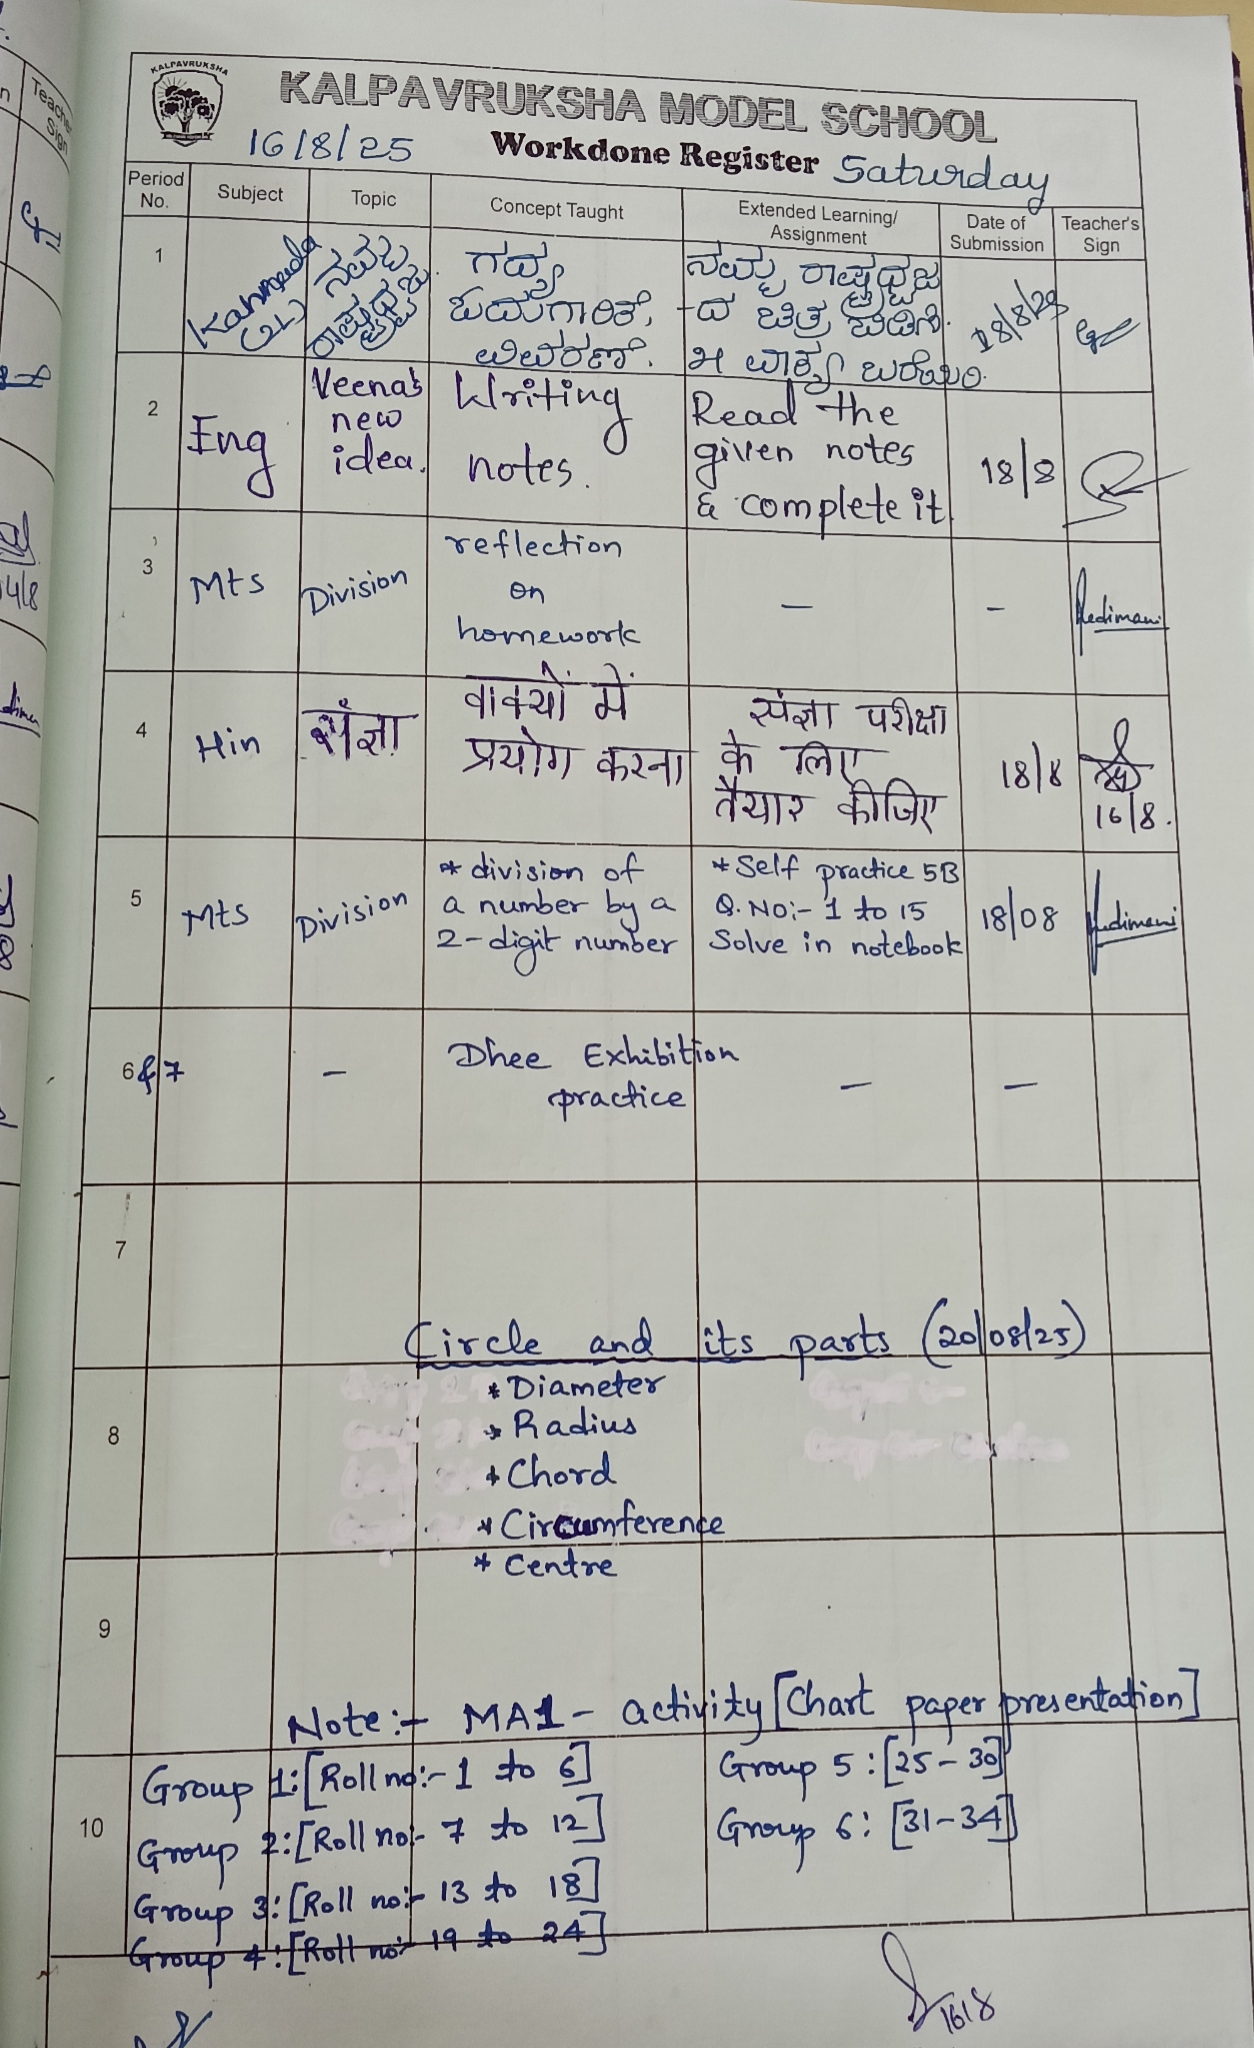 KALPAVRUKSHA
KALPAVRUKSHA MODEL SCHOOL
16/8/25 Workdone Register Saturday
Period No. Subject Topic Concept Taught Extended Learning/ Assignment Date of Submission Teacher's Sign
1 Kannada (2L) ನಮ್ಮ ರಾಷ್ಟ್ರಧ್ವಜ. ಗದ್ಯ ನಮ್ಮ ರಾಷ್ಟ್ರಧ್ವಜ
-ದ ಚಿತ್ರ
ವಿವರಣೆ. ೫ ವಾಕ್ಯ ಬರೆಯಿರಿ.
18/8/25
2 Eng Veena's new idea. Writing notes. Read the given notes & complete it 18/8
3 Mts Division reflection on homework — – Hedimani
4 Hin संज्ञा वाक्यों में प्रयोग करना संज्ञा परीक्षा के लिए तैयार कीजिए 18/8
16/8.
5 Mts Division * division of a number by a 2-digit number * Self practice 5B Q.No:- 1 to 15 Solve in notebook 18/08 Hedimani
6 & 7 – Dhee Exhibition practice — —
7
Circle and its parts (20/08/25)
* Diameter
* Radius
8
* Chord
* Circumference
* Centre
9
Note:- MA1 - activity [Chart paper presentation]
Group 1:[Roll no:- 1 to 6] Group 5 : [25-30]
10
Group 2:[Roll no:- 7 to 12] Group 6: [31-34]
Group 3:[Roll no:- 13 to 18]
Group 4:[Roll no:- 19 to 24]
16/8